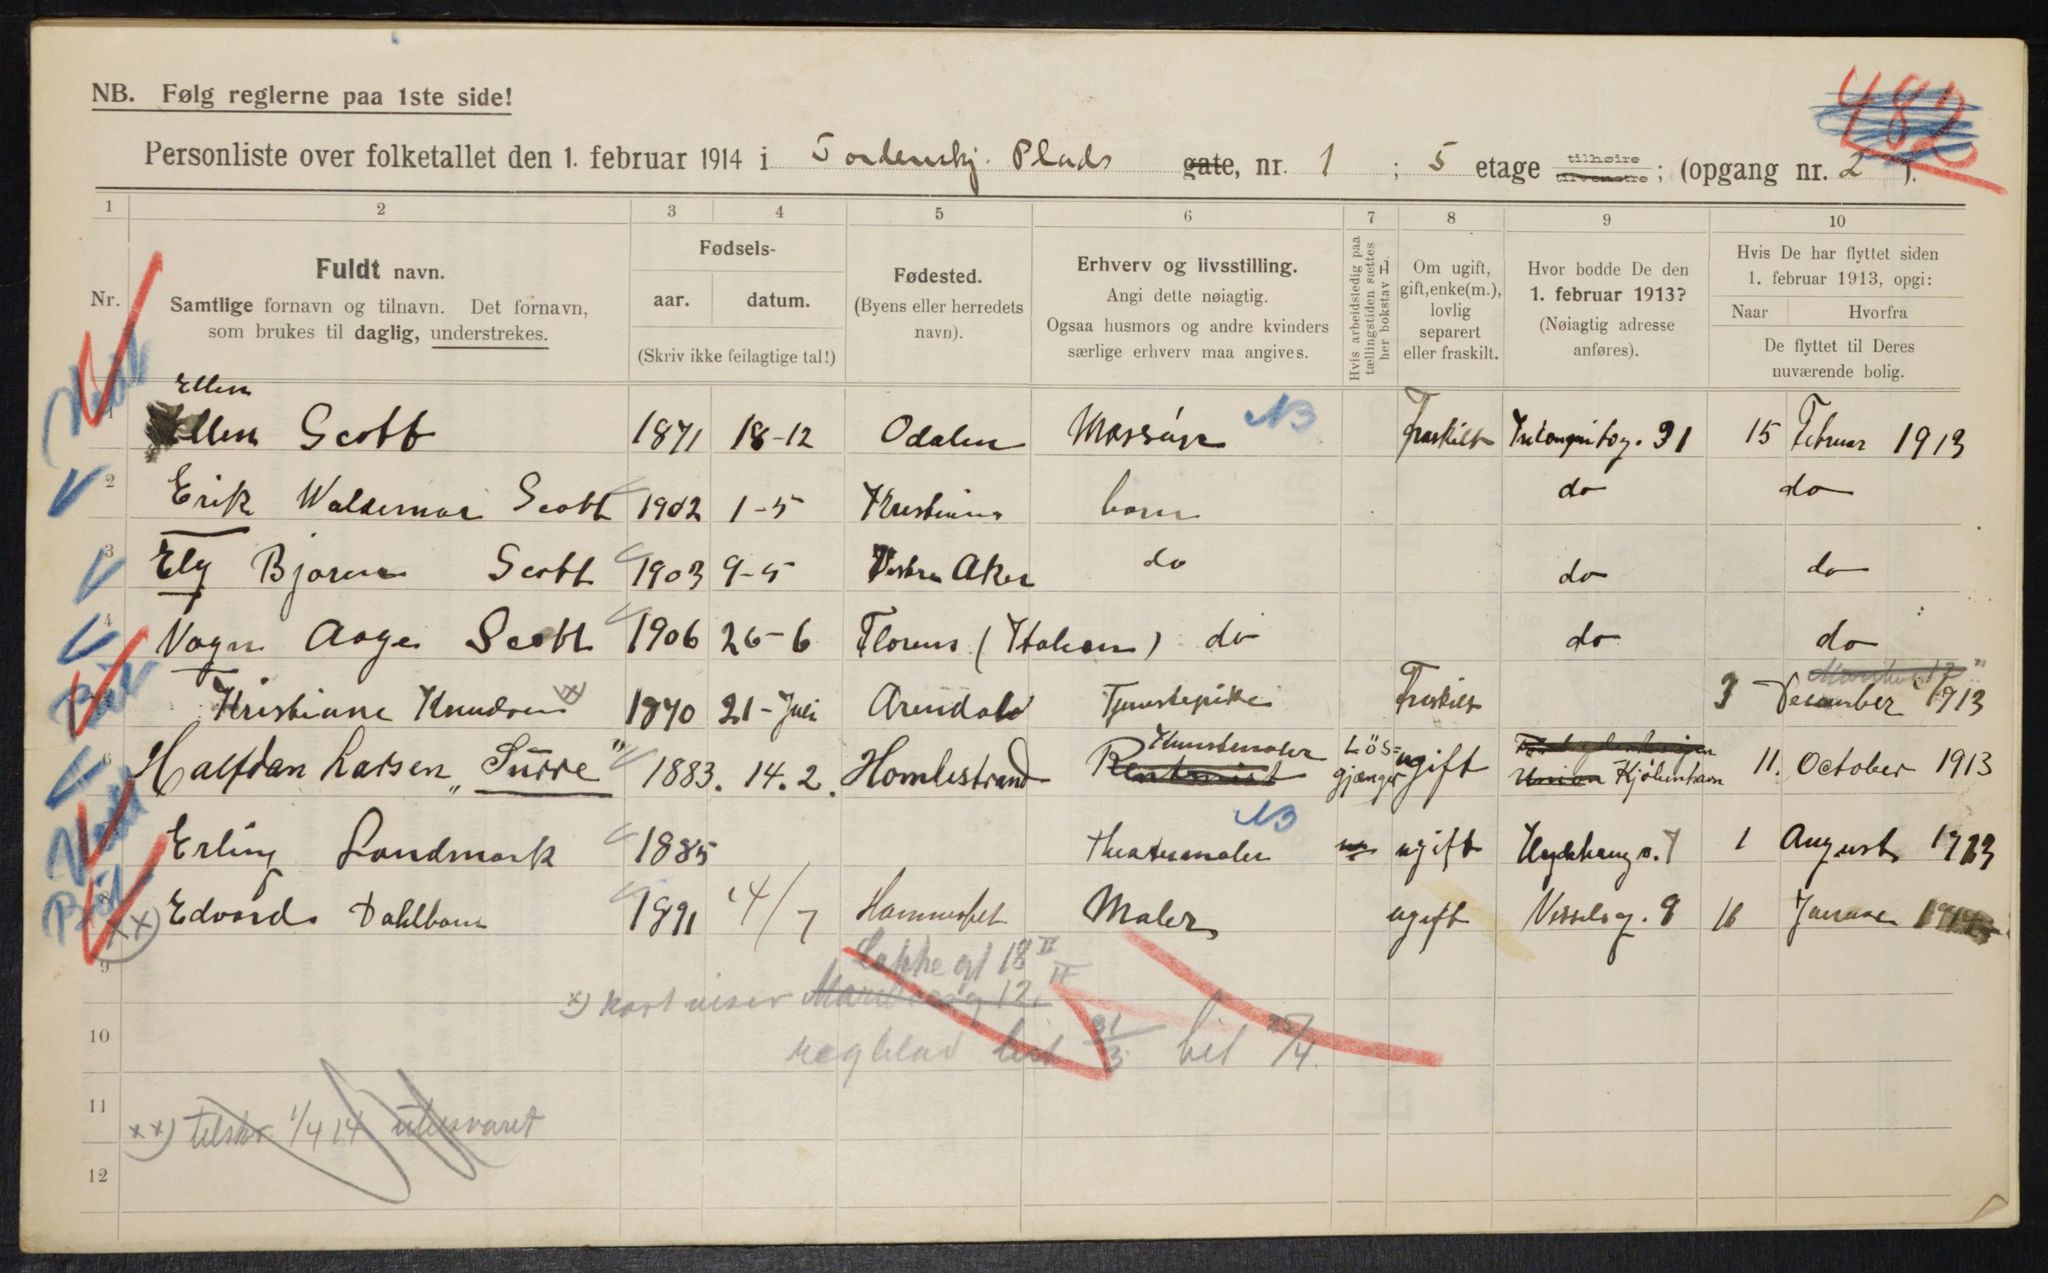 NB. Følg reglerne paa 1ste side!
482
Personliste over folketallet den 1. februar 1914 i Tordenskj. Plads gate, nr. 1 ; 5 etage tilhøire tilvenstre; (opgang nr. 2 ).
1 2 3 4 5 6 7 8 9 10
Nr.
Fuldt navn.
Samtlige fornavn og tilnavn. Det fornavn,
som brukes til daglig, understrekes.
Fødsels-
aar. datum.
(Skriv ikke feilagtige tal!)
Fødested.
(Byens eller herredets
navn).
Erhverv og livsstilling.
Angi dette nøiagtig.
Ogsaa husmors og andre kvinders
særlige erhverv maa angives.
Hvis arbeidsledig paa
tællingstiden sættes
her bokstav A
Om ugift,
gift, enke(m.),
lovlig
separert
eller fraskilt.
Hvor bodde De den
1. februar 1913?
(Nøiagtig adresse
anføres).
Hvis De har flyttet siden
1. februar 1913, opgi:
Naar Hvorfra
De flyttet til Deres
nuværende bolig.
Ellen
1 Ellen Scott 1871 18-12 Odalen Massöse NB Fraskilt 31 15 Februar 1913
2 Erik Waldemar Scott 1902 1-5 Kristiania barn do do
3 Ely Bjørn Scott 1903 9-5 Vestre Aker do do do
4 Vagn Aage Scott 1906 26-6 Florens (Italien) do do do
Kristiane Knudsen x) 1870 21-Juli Arendal Tjenestepike Fraskilt 3 December 1913
6 Halfdan Larsen "Surre" 1883. 14.2. Holmestrand Kunstmaler Rentenist Lös= gjænger ugift Union Kjöbenhavn 11. October 1913
Erling Landmark 1885 Theatermaler NB ugift 1 August 1913
8 xx) Edvard Dahlbom 1891 4/7 Hammerfest Maler ugift Vesselsg. 9 16 Januar 1914
9 Lakkegt 18 II
x) kort viser 12 II
10 regblad 31/3 hit 25/4.
11
xx) tilskr. 1/4 14 ubesvaret
12